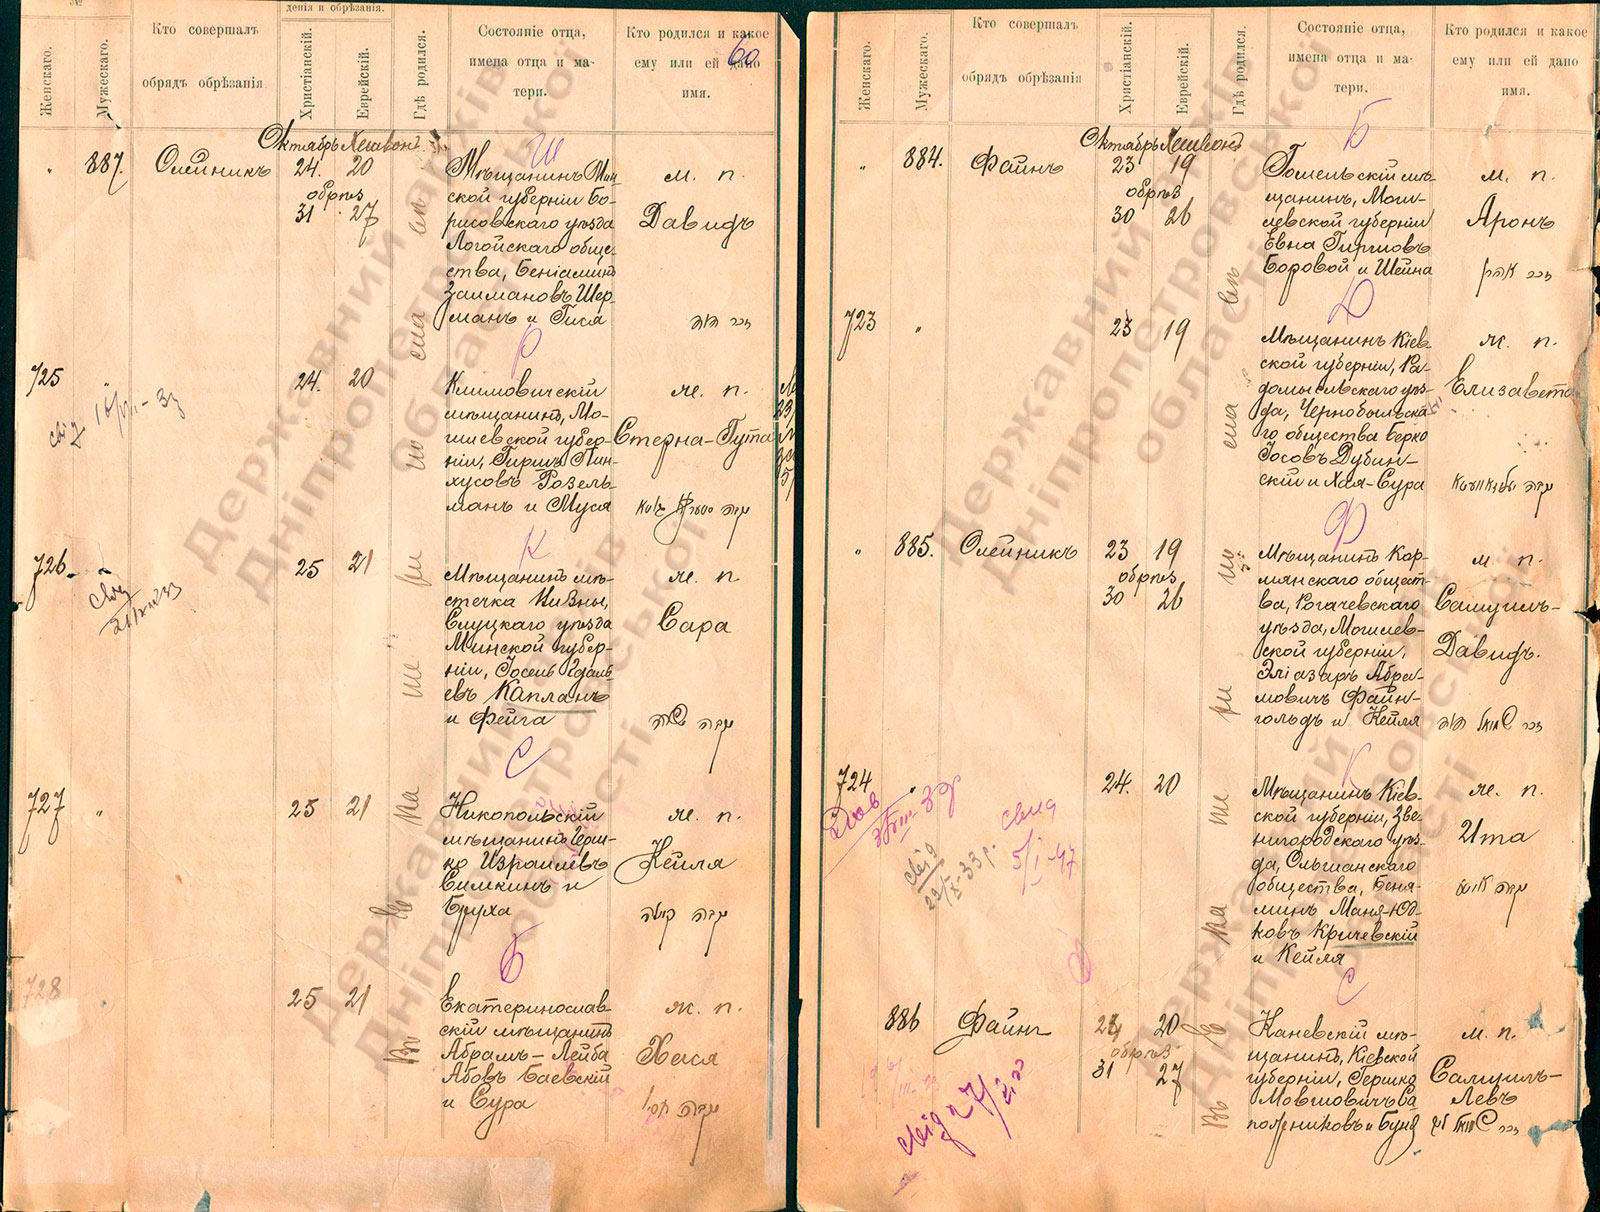 №
дения и обрѣзанія.
Женскаго.
Мужескаго.
Кто совершалъ
обрядъ обрѣзанія
Христіанскій.
Еврейскій.
Гдѣ родился.
Состояніе отца,
имена отца и ма-
тери.
Кто родился и какое
ему или ей дано
имя.
60
Октябрь Хешвонъ
Ш
" 887. Олейникъ 24. 20
обрѣз
31 27
Мѣщанинъ Мин-
ской губерніи Бо-
рисовскаго уѣзда
Логойскаго обще-
ства, Беніаминъ
Залмановъ Шер-
манъ и Гися
м. п.
Давидъ
זכר דוד
Р
725 " 24. 20
Климовичскій
мѣщанинъ, Мо-
гилевской губер-
ніи, Гиршъ Пин-
хусовъ Розель-
манъ и Муся
ж. п.
Стерна-Гута
К
726 25 21
Мѣщанинъ мѣ-
стечка Кивны,
Слуцкаго уѣзда
Минской губер-
ніи, Іосель Гдаль-
евъ Капланъ
и Фейга
ж. п
Сара
נקבה שרה
С
727 " 25 21
Никопольскій
мѣщанинъ Герш-
ко Израилевъ
Симкинъ и
Бруха
ж. п.
Кейля
נקבה קיילה
Б
728 25 21
Екатеринослав-
скій мѣщанинъ
Абрамъ-Лейба
Абовъ Баевскій
и Сура
ж. п.
Хася
נקבה חסי
Въ Ека те ри но сла вѣ
Женскаго.
Мужескаго.
Кто совершалъ
обрядъ обрѣзанія
Христіанскій.
Еврейскій.
Гдѣ родился.
Состояніе отца,
имена отца и ма-
тери.
Кто родился и какое
ему или ей дано
имя.
Октябрь Хешвонъ
Б
" 884. Файнъ 23 19
обрѣз
30 26
Гомельскій мѣ-
щанинъ, Моги-
левской губерніи
Евна Гиршовъ
Боровой и Шейна
м. п.
Аронъ
זכר אהרן
Д
723 " 23 19
Мѣщанинъ Кіев-
ской губерніи, Ра-
домысльскаго уѣз-
да, Чернобыльска-
го общества Берко
Іосовъ Дубин-
скій и Хая-Сура
ж. п.
Елизавета
Ф
" 885. Олейникъ 23 19
обрѣз
30 26
Мѣщанинъ Кор-
мянскаго общест-
ва, Рогачевскаго
уѣзда, Могилев-
ской губерніи,
Эліазаръ Абра-
мовичъ Файн-
гольдъ и Кейля
м. п.
Самуилъ-
Давидъ.
זכר שמואל דוד
К
724 " 24. 20
Мѣщанинъ Кіев-
ской губерніи, Зве-
нигородскаго уѣз-
да, Ольшанскаго
общества, Беня-
минъ Маня-Юд-
ковъ Кричевскій
и Кейля
ж. п.
Ита
נקבה איטא
свид
5/I-47
свид
29/IX-33 г.
С
886 Файнъ 24 20
обрѣз
31 27
Каневскій мѣ-
щанинъ, Кіевской
губерніи, Гершко
Мовшовичъ Са-
пожниковъ и Буня
м. п.
Самуилъ-
Левъ
Въ Ека те ри но сла вѣ
Державний архів
Дніпропетровської
області